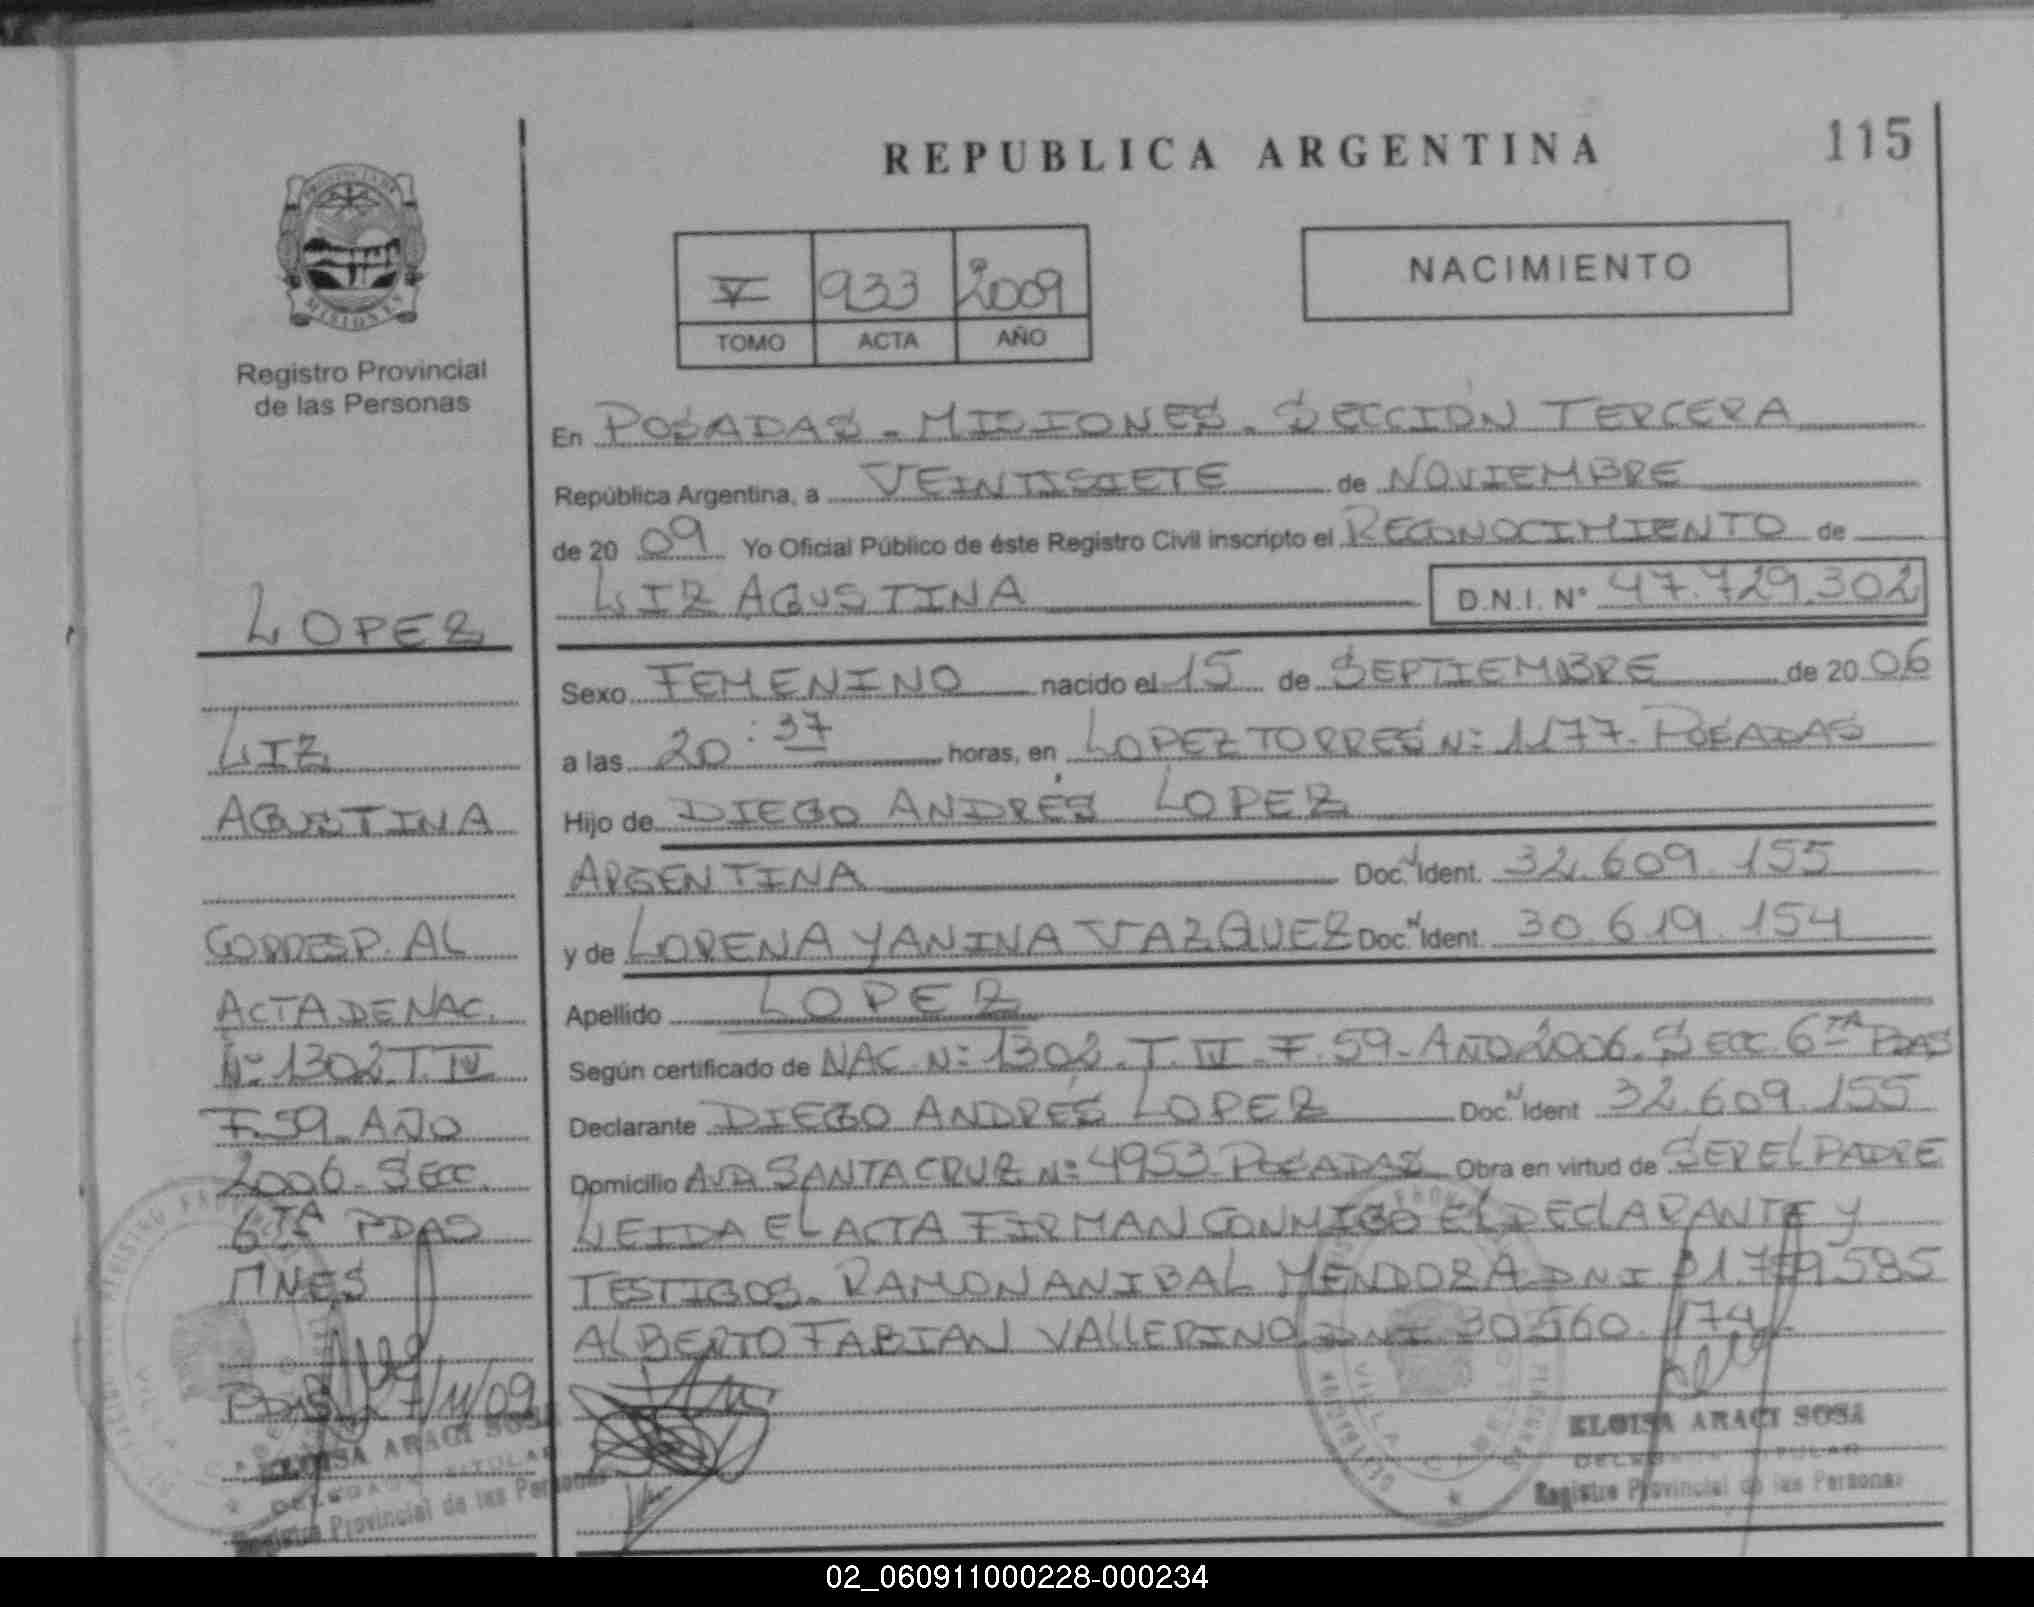 REPUBLICA ARGENTINA
115
PROVINCIA DE
MISIONES
Registro Provincial
de las Personas
V 933 2009
TOMO ACTA AÑO
NACIMIENTO
En POSADAS - MISIONES - SECCIÓN TERCERA
República Argentina, a VEINTISIETE de NOVIEMBRE
de 20 09 Yo Oficial Público de éste Registro Civil inscripto el RECONOCIMIENTO de
LIZ AGUSTINA D.N.I. N° 47.729.302
Sexo FEMENINO nacido el 15 de SEPTIEMBRE de 20 06
a las 20:37 horas, en LOPEZ TORRES Nº 1177. POSADAS
Hijo de DIEGO ANDRÉS LOPEZ
ARGENTINA Doc. Ident. 32.609.155
y de LORENA YANINA VAZQUEZ Doc. Ident. 30.619.154
Apellido LOPEZ
Según certificado de NAC. Nº 1302. T. IV. F. 59. AÑO 2006. SECC. 6TA PDAS
Declarante DIEGO ANDRÉS LOPEZ Doc. Ident 32.609.155
Domicilio AVDA SANTA CRUZ Nº 4953. POSADAS Obra en virtud de SER EL PADRE
LEIDA EL ACTA FIRMAN CONMIGO EL DECLARANTE Y
TESTIGOS. RAMON ANIBAL MENDOZA DNI 31.759.585
ALBERTO FABIAN VALLERINO DNI 30.560.174
ELOISA ARACI SOSA
DELEGADA TITULAR
Registro Provincial de las Personas
LOPEZ
LIZ
AGUSTINA
CORRESP. AL
ACTA DE NAC.
Nº 1302 T. IV
F. 59. AÑO
2006. SECC.
6TA PDAS
MNES
PDAS 27/11/09
ELOISA ARACI SOSA
DELEGADA TITULAR
Registro Provincial de las Personas
02_060911000228-000234